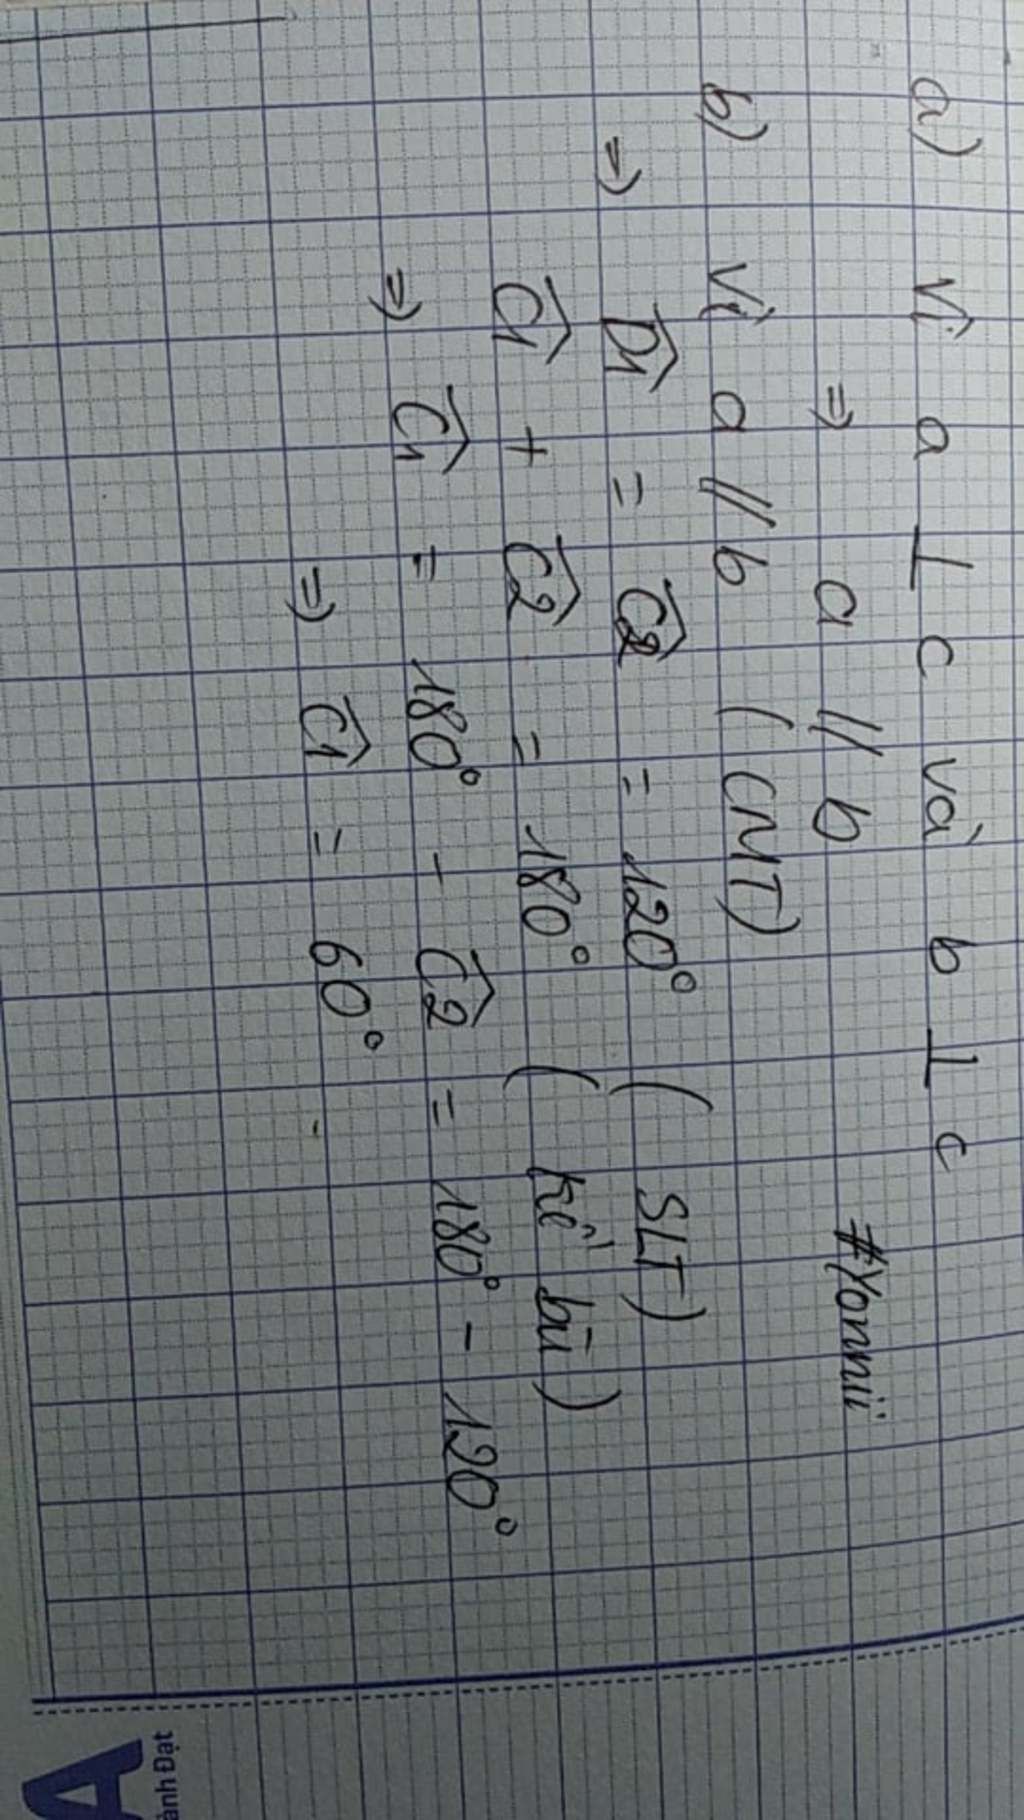 a) Vì a ⊥ c và b ⊥ c
⇒ a // b
#Yonnii
b) Vì a // b (CMT)
⇒ D̂1 = Ĉ2 = 120° (SLT)
Ĉ1 + Ĉ2 = 180° (kề bù)
⇒ Ĉ1 = 180° - Ĉ2 = 180° - 120°
⇒ Ĉ1 = 60°
A
ành Đạt